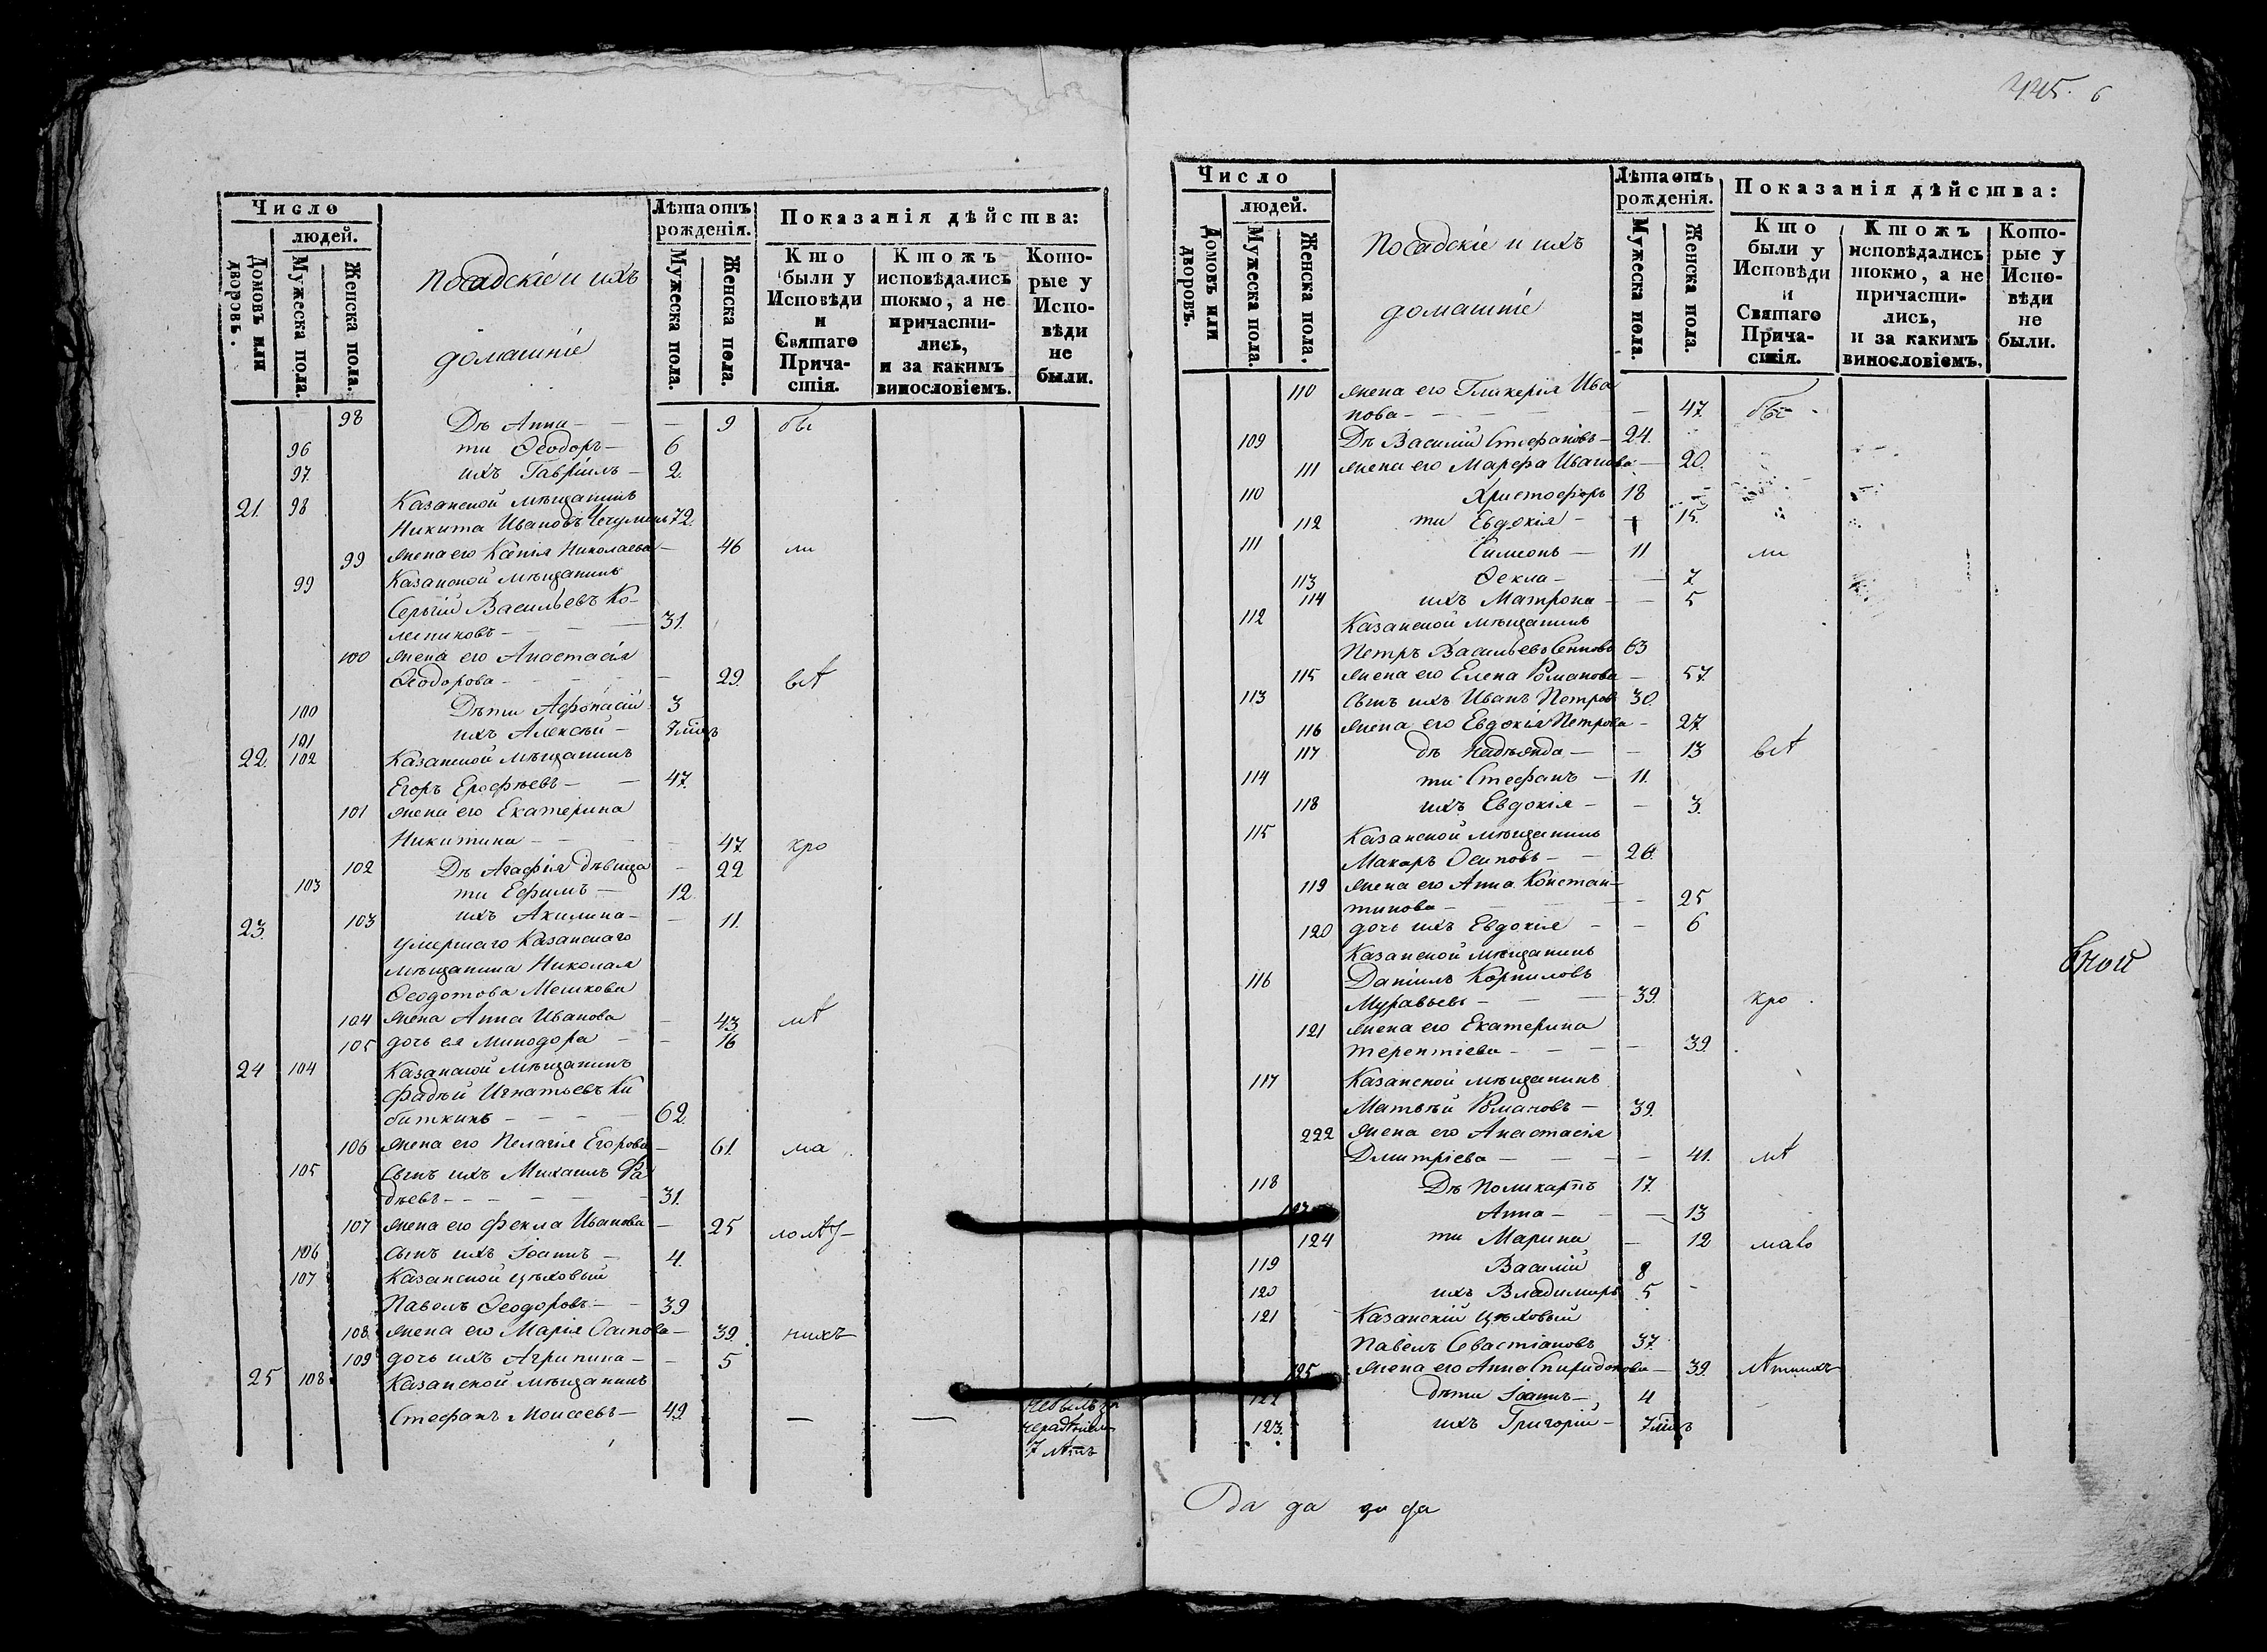 445. 6
Число
людей.
Домовъ или дворовъ.
Мужеска пола.
Женска пола.
Посадскіе и ихъ
домашніе
Лѣта отъ рожденія.
Мужеска пола.
Женска пола.
Показанія дѣйства:
Кто были у Исповѣди и Святаго Прича-стія.
Ктожъ исповѣдались токмо, а не причасти-лись, и за какимъ винословіемъ.
Кото-рые у Испо-вѣди не были.
98 Дѣ Анна — — 9 бы
96 ти Ѳеодоръ — 6
97. ихъ Гавріилъ — 2.
21. 98 Казанской мѣщанинъ
Никита Ивановъ 72.
99 жена его Ксенія Николаева — 46 ли
99 Казанской мѣщанинъ
Сергій Васильевъ Ко-
лесниковъ — — 31.
100 жена его Анастасія
Ѳеодорова — — 29. всѣ
100 Дѣти Афонасій 3
101 ихъ Алексѣй — 7 міцъ
22. 102 Казанской мѣщанинъ
Егоръ Ерофѣевъ — — 47.
101 жена его Екатерина
Никитина — — 47. кро
102 Дѣ Агафія дѣвица — 22
103 ти Ефимъ — 12
23. 103 ихъ Акилина — — 11.
умершаго Казанскаго
мѣщанина Николая
Ѳеодотова Мешкова
104 жена Анна Иванова — 43. мѣ
105 дочь ея Минодора — — 16
24 104 Казанской мѣщанинъ
Фадѣй Игнатьевъ Ки
биткинъ — — — 62.
106 жена его Пелагія Егорова — 61. ма
105 Сынъ ихъ Михаилъ Фа
дѣевъ — — — 31.
107 жена его Фекла Иванова — 25 лолѣт
106 Сынъ ихъ Іоаннъ — 4.
107 Казанской цѣховый
Павелъ Ѳеодоровъ — — 39
108. жена его Марія Осипова — 39. нихъ
109 дочь ихъ Агрипина — — 5
25 108. Казанской мѣщанинъ
Стефанъ Моисеевъ — 49. — — небылъ по
нерадѣнію
7 лѣтъ
Число
людей.
Домовъ или дворовъ.
Мужеска пола.
Женска пола.
Посадскіе и ихъ
домашніе
Лѣта отъ рожденія.
Мужеска пола.
Женска пола.
Показанія дѣйства:
Кто были у Исповѣди и Святаго Прича-стія.
Ктожъ исповѣдались токмо, а не причасти-лись, и за какимъ винословіемъ.
Кото-рые у Испо-вѣди не были.
110 жена его Гликерія Ива
нова — — — 47. бы
109 Дѣ Василій Стефановъ — 24.
111 жена его Марфа Иванова — 20.
110 Христофоръ 18
112 ти Евдокія — — 15.
111 Симеонъ — 11 ли
113 Ѳекла — — 7
114 ихъ Матрона — — 5
112 Казанской мѣщанинъ
Петръ Васильевъ 63
115 жена его Елена Романова — 57.
113 Сынъ ихъ Иванъ Петров 30.
116 жена его Евдокія Петрова — 27.
117 дѣ Надѣжда — — 13 всѣ
114 ти Стефанъ — 11.
118 ихъ Евдокія — — 3.
115 Казанской мѣщанинъ
Макаръ Осиповъ — — 26.
119 жена его Анна Констан-
тинова — — 25
120 дочь ихъ Евдокія — — 6
Казанской мѣщанинъ
116 Даніилъ Корниловъ
Муравьевъ — — 39. кро
121 жена его Екатерина
Терентіева — — — 39.
117 Казанской мѣщанинъ
Матвѣй Романовъ — 39.
222 жена его Анастасія
Дмитріева — — — 41. мѣ
118 Дѣ Поликарпъ 17.
Анна — — 13
124 ти Марина — 12 мало
119 Василій 8
120 ихъ Владимиръ 5
121 Казанскій цѣховый
Павелъ Севастіановъ 37.
125 жена его Анна Спиридонова — 39. лѣтнихъ
122 дѣти Іоаннъ — 4
123. ихъ Григорій — 7 міцъ
Да да да да